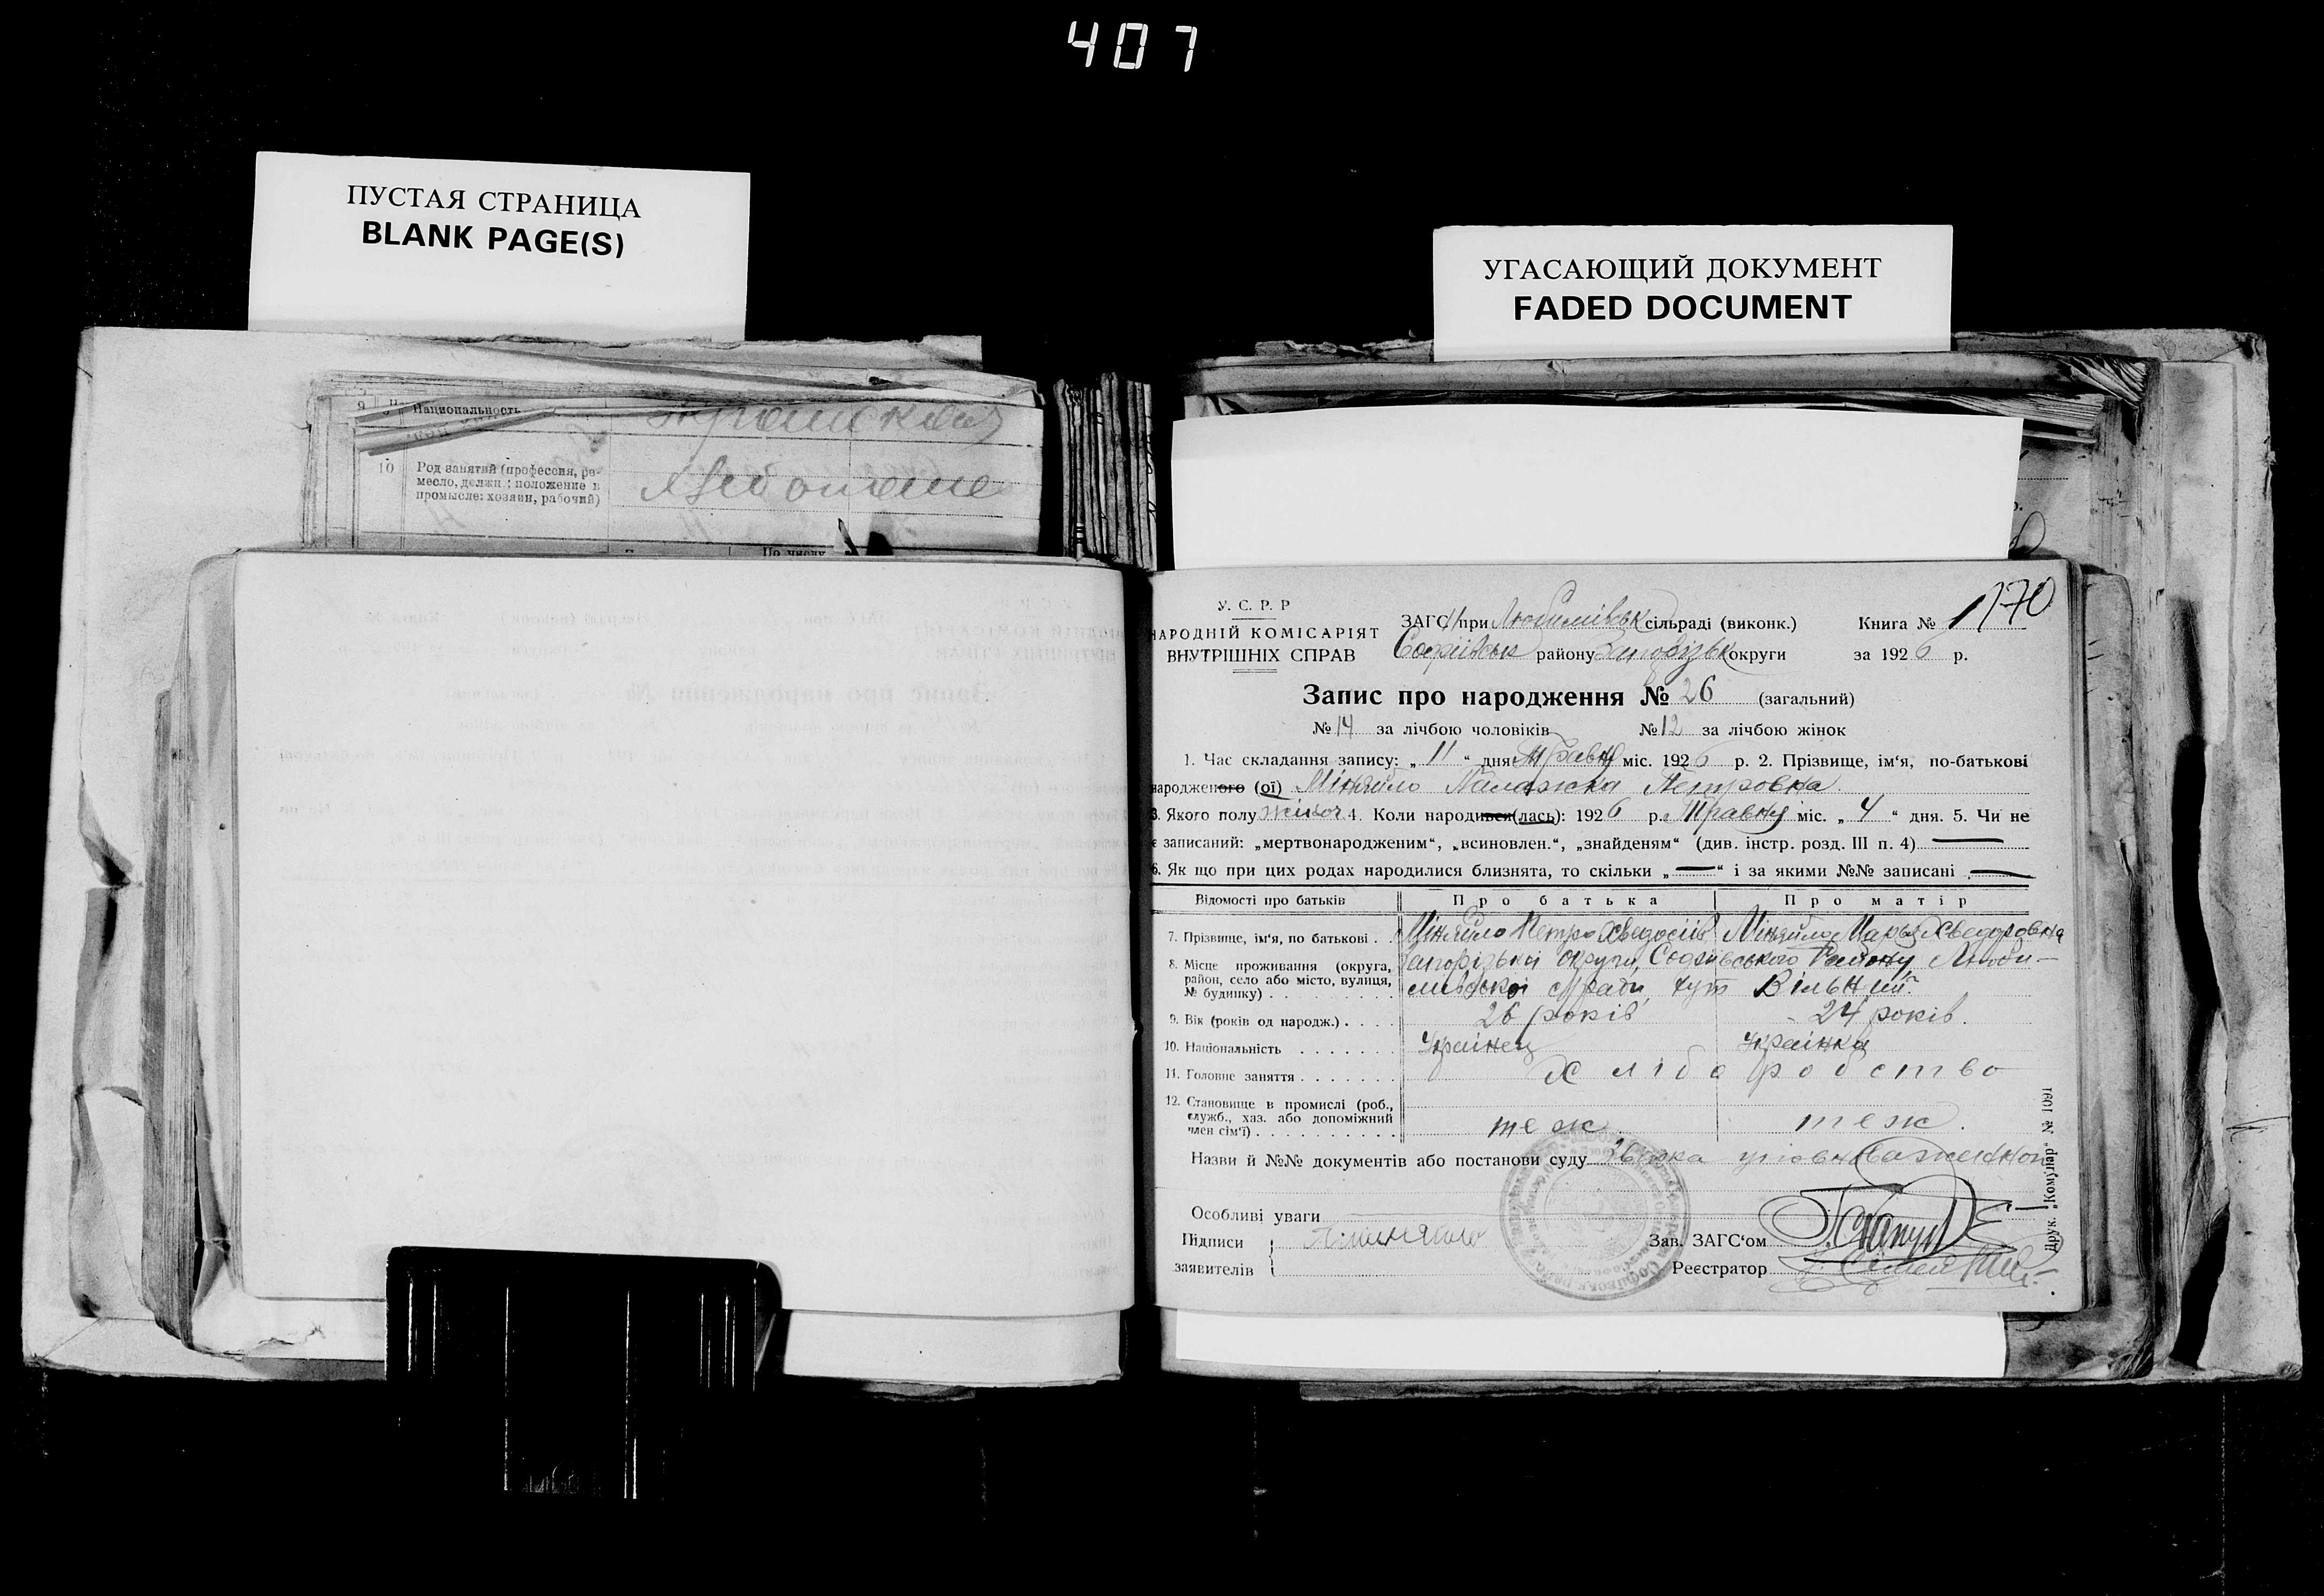 407
ПУСТАЯ СТРАНИЦА
BLANK PAGE(S)
УГАСАЮЩИЙ ДОКУМЕНТ
FADED DOCUMENT
9 Национальность
10 Род занятий (профессия, ре-
месло, должн.: положение в
промысле: хозяин, рабочий)
По числу
У. С. Р. Р
НАРОДНІЙ КОМІСАРІЯТ
ВНУТРІШНІХ СПРАВ
ЗАГС при Любимівськ сільраді (виконк.)
Софіївськ району Запорізьк округи
Книга № 170
за 1926 р.
Запис про народження № 26 (загальний)
№ 14 за лічбою чоловіків № 12 за лічбою жінок
1. Час складання запису: „ 11 “ дня Травн міс. 1926 р. 2. Прізвище, ім‘я, по-батькові
народженого (ої) Міняйло Палажка Петровна
3. Якого полу жіноч 4. Коли народився(лась): 1926 р. Травню міс. „ 4 “ дня. 5. Чи не
є записаний: „мертвонародженим“, „всиновлен.“, „знайденям“ (див. інстр. розд. III п. 4) —
6. Як що при цих родах народилися близнята, то скільки „ — “ і за якими №№ записані —
Відомості про батьків Про батька Про матір
7. Прізвище, ім‘я, по батькові . . Міняйло Петро Хведосіів Міняйло Марья Хведоровна
8. Місце проживання (округа,
район, село або місто, вулиця,
№ будинку) . . . . . . . . .
Запорізькоі округи, Софиівського Району Люби-
мівськоі с/ради, хут Вільний.
9. Вік (років од народж.) . . . . 26 років 24 років.
10. Національність . . . . . . . Украінец украінка
11. Головне заняття . . . . . . . Хліборобство
12. Становище в промислі (роб.,
служб., хаз. або допоміжний
член сім‘ї) . . . . . . . . . .
теж. теж.
Назви й №№ документів або постанови суду
Особливі уваги
Підписи
заявителів
Зав. ЗАГС‘ом
Реєстратор
Друк. „Комунар“ № 1091